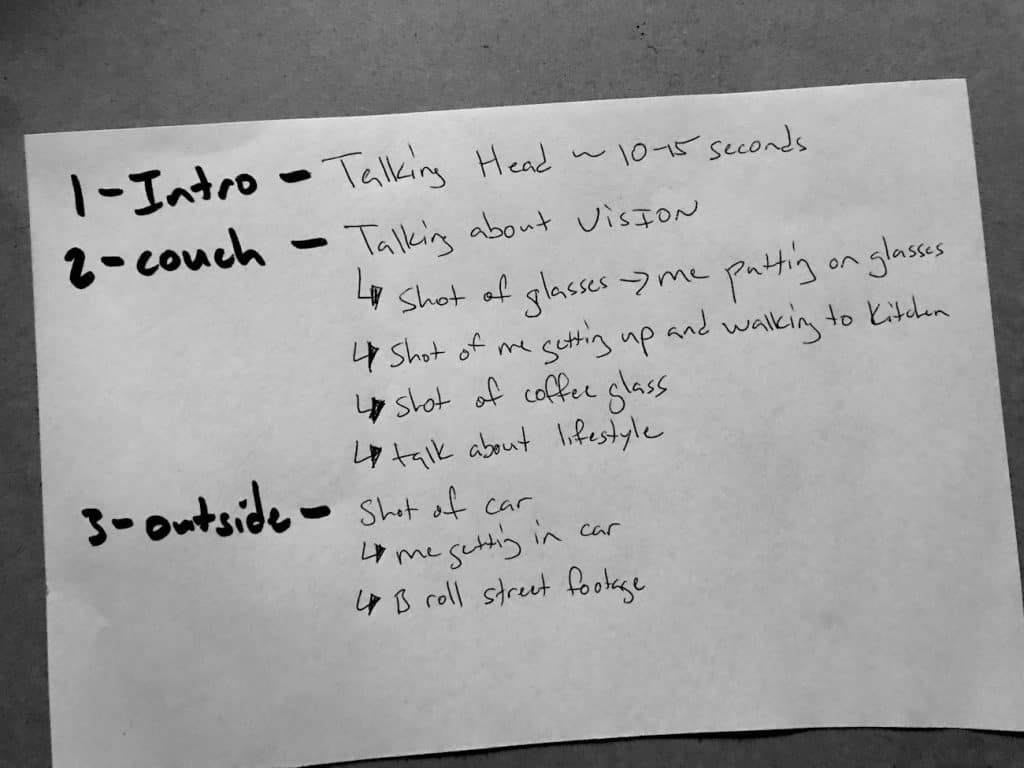 1-Intro - Talking Head ~ 10-15 seconds
2-couch - Talking about VISION
↳ Shot of glasses → me putting on glasses
↳ Shot of me getting up and walking to kitchen
↳ shot of coffee glass
↳ talk about lifestyle
3-outside - Shot of car
↳ me getting in car
↳ B roll street footage